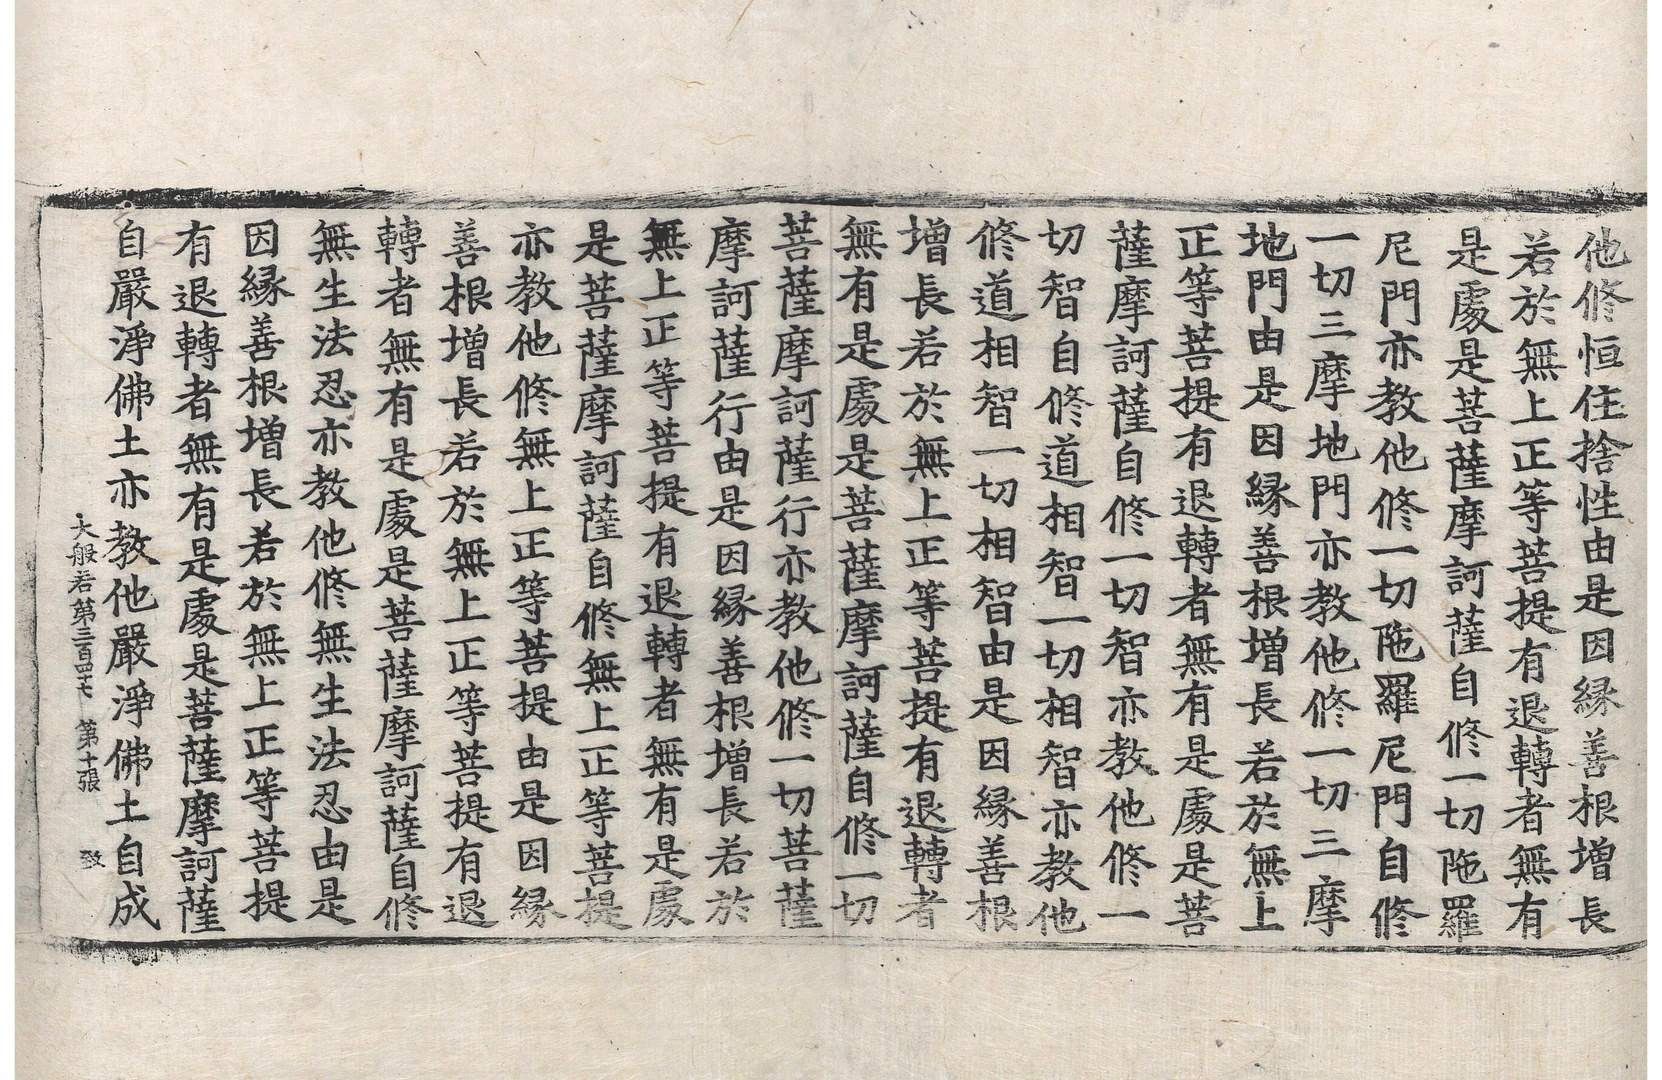 他修恒住捨性由是因縁善根增長
若於無上正等菩提有退轉者無有
是處是菩薩摩訶薩自修一切陁羅
尼門亦教他修一切陁羅尼門自修
一切三摩地門亦教他修一切三摩
地門由是因縁善根增長若於無上
正等菩提有退轉者無有是處是菩
薩摩訶薩自修一切智亦教他修一
切智自修道相智一切相智亦教他
修道相智一切相智由是因縁善根
增長若於無上正等菩提有退轉者
無有是處是菩薩摩訶薩自修一切
菩薩摩訶薩行亦教他修一切菩薩
摩訶薩行由是因縁善根增長若於
無上正等菩提有退轉者無有是處
是菩薩摩訶薩自修無上正等菩提
亦教他修無上正等菩提由是因縁
善根增長若於無上正等菩提有退
轉者無有是處是菩薩摩訶薩自修
無生法忍亦教他修無生法忍由是
因縁善根增長若於無上正等菩提
有退轉者無有是處是菩薩摩訶薩
自嚴淨佛土亦教他嚴淨佛土自成
大般若第三百四十七 第十張 致